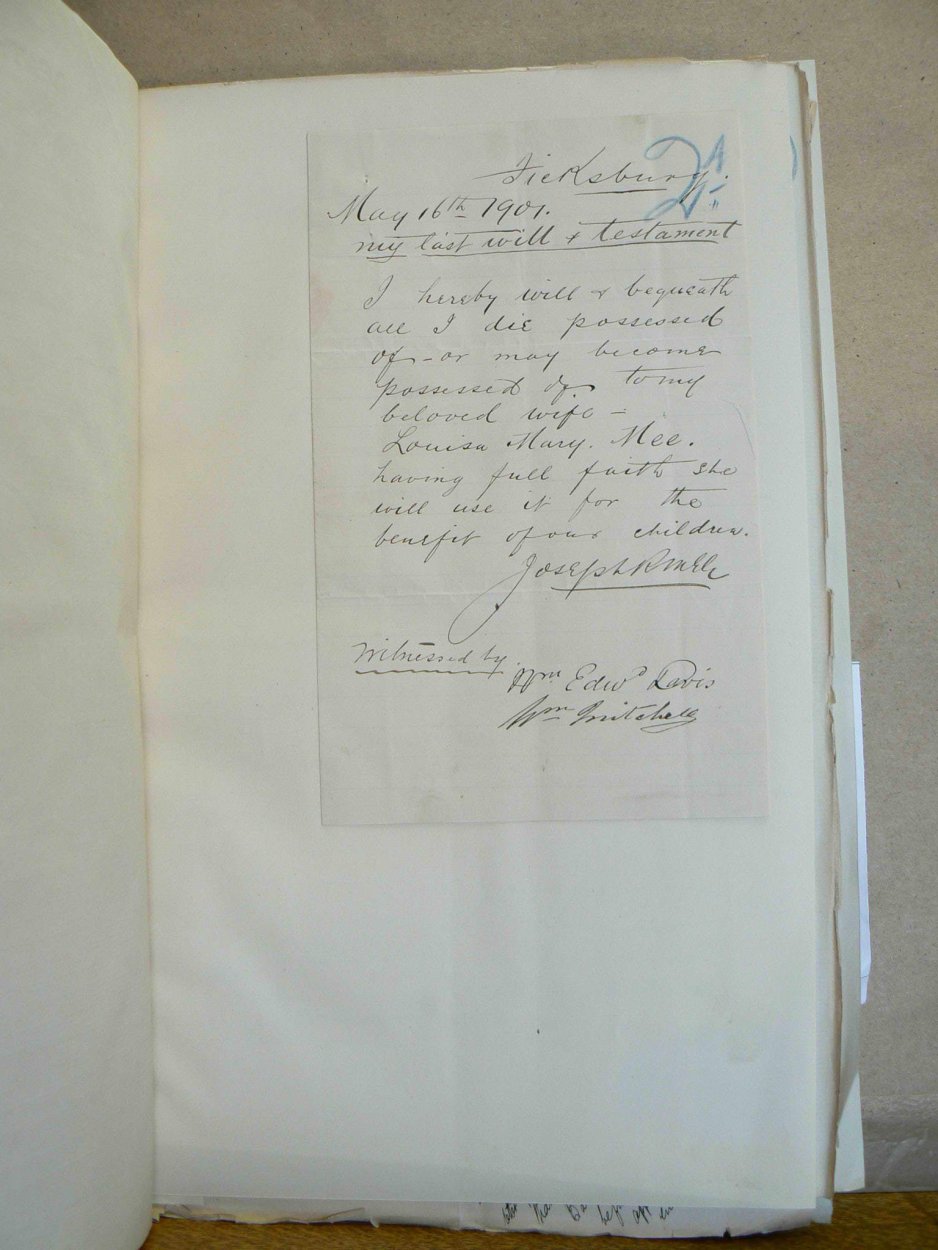 Ficksburg.
May 16th 1901.
my last will & testament
I hereby will & bequeath
all I die possessed
of - or may become
possessed of, to my
beloved wife -
Louisa Mary. Mee.
having full faith she
will use it for the
benefit of our children.
Joseph R Mee
Witnessed by
Wm Edwd Davis
Wm